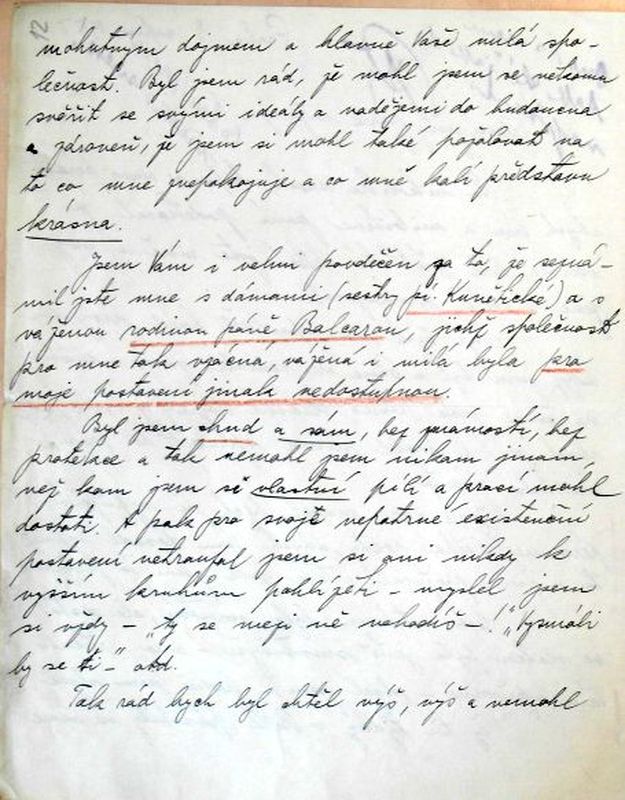 12
mohutným dojmem a hlavně Vaše milá spo-
lečnost. Byl jsem rád, že mohl jsem se někomu
svěřit se svými ideály a nadějemi do budoucna
a zároveň, že jsem si mohl také požalovat na
to co mne znepokojuje a co mně kalí představu
krásna.
Jsem Vám i velmi povděčen za to, že sezná-
mil jste mne s dámami (sestry pí. Kunětické) a s
váženou rodinou páně Balcarou, jichž společnost
pro mne tak vzácná, vážená i milá byla pro
moje postavení jinak nedostupnou.
Byl jsem chud a sám, bez známostí, bez
protekce a tak nemohl jsem nikam jinam,
než kam jsem se vlastní pílí a prací mohl
dostati. A pak pro svoje nepatrné existenční
postavení netroufal jsem si ani nikdy k
vyšším kruhům pohlížeti – myslel jsem
si vždy – „ty se mezi ně nehodíš –! „Vysmáli
by se ti –" atd.
Tak rád bych byl chtěl výš, výš a nemohl